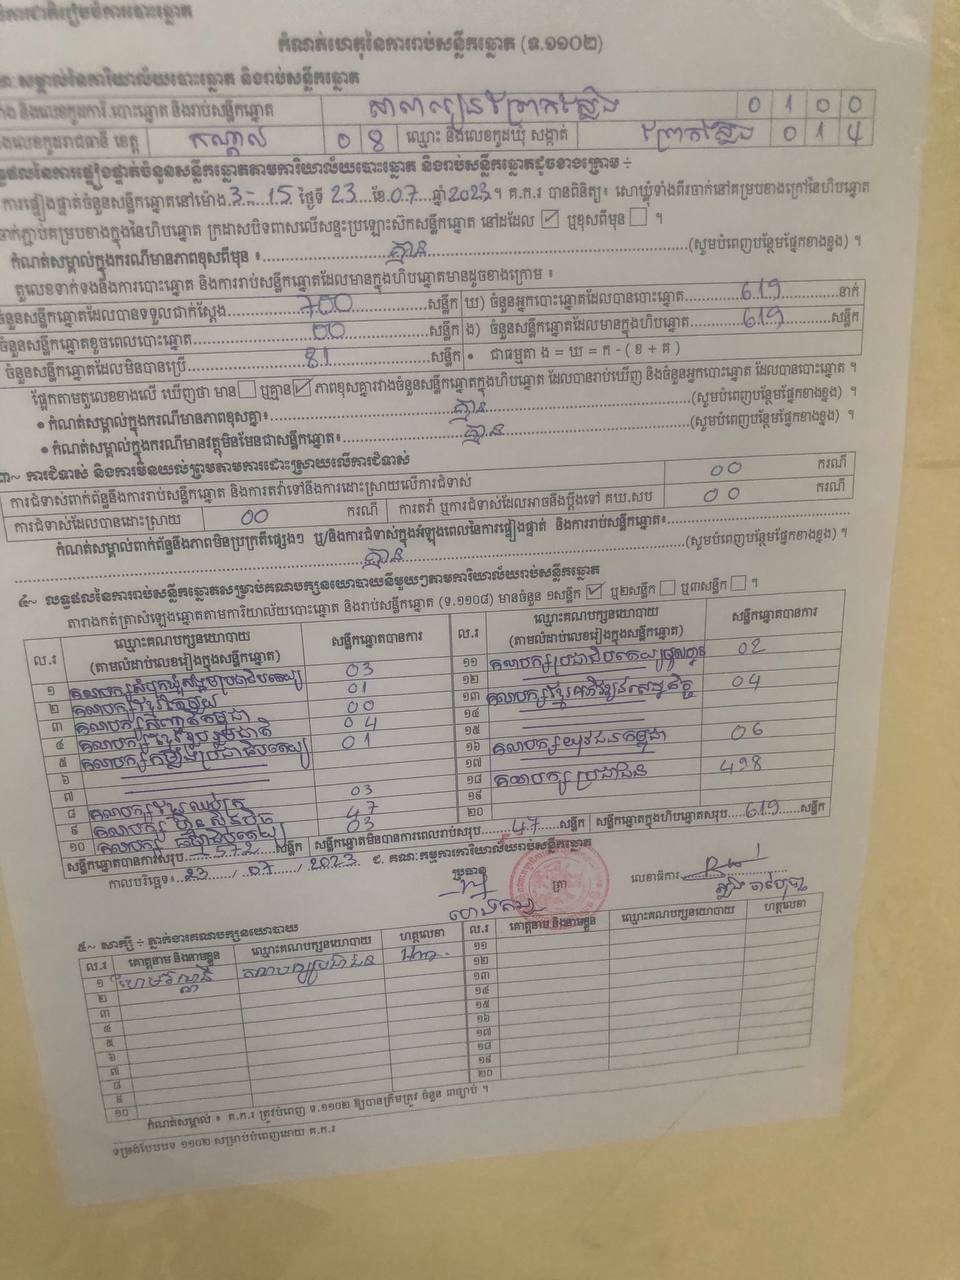 កំណត់ហេតុនៃការរាប់សន្លឹកឆ្នោត (ទ.១១០២)
សម្គាល់នៃការិយាល័យបោះឆ្នោត និងរាប់សន្លឹកឆ្នោត
និងលេខកូដការិ.បោះឆ្នោត និងរាប់សន្លឹកឆ្នោត សាលារៀនព្រែកស្លែង 0 1 0 0
លេខកូដរាជធានី ខេត្ត កណ្តាល 0 8 ឈ្មោះ និងលេខកូដឃុំ សង្កាត់ ព្រែកស្លែង 0 1 4
នៃការផ្ទៀងផ្ទាត់ចំនួនសន្លឹកឆ្នោតតាមការិយាល័យបោះឆ្នោត និងរាប់សន្លឹកឆ្នោតដូចខាងក្រោម ÷
ការផ្ទៀងផ្ទាត់ចំនួនសន្លឹកឆ្នោតនៅម៉ោង 3-15 ថ្ងៃទី 23 ខែ 07 ឆ្នាំ 2023។ គ.ក.រ បានពិនិត្យ៖ សោឃ្លុំទាំងពីរចាក់នៅគម្របខាងក្រៅនៃហិបឆ្នោត
ចាក់ភ្ជាប់គម្របខាងក្នុងនៃហិបឆ្នោត ក្រដាសបិទពាសលើសន្ទះប្រឡោះស៊កសន្លឹកឆ្នោត នៅដដែល ☑ ឬខុសពីមុន ☐ ។
កំណត់សម្គាល់ក្នុងករណីមានភាពខុសពីមុន ៖ គ្មាន (សូមបំពេញបន្ថែមផ្នែកខាងខ្នង) ។
តួលេខទាក់ទងនឹងការបោះឆ្នោត និងការរាប់សន្លឹកឆ្នោតដែលមានក្នុងហិបឆ្នោតមានដូចខាងក្រោម ៖
ចំនួនសន្លឹកឆ្នោតដែលបានទទួលជាក់ស្តែង 700 សន្លឹក ឃ) ចំនួនអ្នកបោះឆ្នោតដែលបានបោះឆ្នោត 619 នាក់
ចំនួនសន្លឹកឆ្នោតខូចពេលបោះឆ្នោត 00 សន្លឹក ង) ចំនួនសន្លឹកឆ្នោតដែលមានក្នុងហិបឆ្នោត 619 សន្លឹក
ចំនួនសន្លឹកឆ្នោតដែលមិនបានប្រើ 81 សន្លឹក • ជាធម្មតា ង = ឃ = ក - ( ខ + គ )
ផ្អែកតាមតួលេខខាងលើ ឃើញថា មាន ☐ ឬគ្មាន ☑ ភាពខុសគ្នារវាងចំនួនសន្លឹកឆ្នោតក្នុងហិបឆ្នោត ដែលបានរាប់ឃើញ និងចំនួនអ្នកបោះឆ្នោត ដែលបានបោះឆ្នោត ។
• កំណត់សម្គាល់ក្នុងករណីមានភាពខុសគ្នា៖ គ្មាន (សូមបំពេញបន្ថែមផ្នែកខាងខ្នង) ។
• កំណត់សម្គាល់ក្នុងករណីមានវត្ថុមិនមែនជាសន្លឹកឆ្នោត៖ គ្មាន (សូមបំពេញបន្ថែមផ្នែកខាងខ្នង) ។
៣~ ការជំទាស់ និងការមិនយល់ព្រមតាមការដោះស្រាយលើការជំទាស់
ការជំទាស់ពាក់ព័ន្ធនឹងការរាប់សន្លឹកឆ្នោត និងការតវ៉ាទៅនឹងការដោះស្រាយលើការជំទាស់ 00 ករណី
ការជំទាស់ដែលបានដោះស្រាយ 00 ករណី ការតវ៉ា ឬការជំទាស់ដែលអាចនឹងប្តឹងទៅ គឃ.សប 00 ករណី
កំណត់សម្គាល់ពាក់ព័ន្ធនឹងភាពមិនប្រក្រតីផ្សេងៗ ឬ/និងការជំទាស់ក្នុងអំឡុងពេលនៃការផ្ទៀងផ្ទាត់ និងការរាប់សន្លឹកឆ្នោត៖
គ្មាន (សូមបំពេញបន្ថែមផ្នែកខាងខ្នង) ។
៤~ លទ្ធផលនៃការរាប់សន្លឹកឆ្នោតសម្រាប់គណបក្សនយោបាយនីមួយៗតាមការិយាល័យរាប់សន្លឹកឆ្នោត
តារាងកត់ត្រាសំឡេងឆ្នោតតាមការិយាល័យបោះឆ្នោត និងរាប់សន្លឹកឆ្នោត (ទ.១១០៨) មានចំនួន ១សន្លឹក ☑ ឬ២សន្លឹក ☐ ឬ៣សន្លឹក ☐ ។
ល.រ ឈ្មោះគណបក្សនយោបាយ (តាមលំដាប់លេខរៀងក្នុងសន្លឹកឆ្នោត) សន្លឹកឆ្នោតបានការ
១ គណបក្សសំបុកឃ្មុំសង្គមប្រជាធិបតេយ្យ 03
២ គណបក្សខ្មែរ 01
៣ គណបក្ស កម្ពុជា 00
៤ គណបក្សខ្មែររួបរួមជាតិ 04
៥ គណបក្សកម្លាំងប្រជាធិបតេយ្យ 01
៦
៧
៨ គណបក្សខ្មែរឈប់ក្រ 03
៩ គណបក្ស ហ្វ៊ុនស៊ិនប៉ិច 47
១០ គណបក្ស ធម្មាធិបតេយ្យ 03
ល.រ ឈ្មោះគណបក្សនយោបាយ (តាមលំដាប់លេខរៀងក្នុងសន្លឹកឆ្នោត) សន្លឹកឆ្នោតបានការ
១១ គណបក្សប្រជាធិបតេយ្យមូលដ្ឋាន 02
១២
១៣ គណបក្សខ្មែរអភិវឌ្ឍន៍សេដ្ឋកិច្ច 04
១៤
១៥
១៦ គណបក្សយុវជនកម្ពុជា 06
១៧
១៨ គណបក្សប្រជាជន 498
១៩
២០
សន្លឹកឆ្នោតបានការសរុប 572 សន្លឹក សន្លឹកឆ្នោតមិនបានការពេលរាប់សរុប 47 សន្លឹក សន្លឹកឆ្នោតក្នុងហិបឆ្នោតសរុប 619 សន្លឹក
កាលបរិច្ឆេទ៖ 23 / 07 / 2023 ជ. គណៈកម្មការការិយាល័យរាប់សន្លឹកឆ្នោត
ប្រធាន ត្រា លេខាធិការ
៥~ សាក្សី ÷ ភ្នាក់ងារគណបក្សនយោបាយ
ល.រ គោត្តនាម និងនាមខ្លួន ឈ្មោះគណបក្សនយោបាយ ហត្ថលេខា ល.រ គោត្តនាម និងនាមខ្លួន ឈ្មោះគណបក្សនយោបាយ ហត្ថលេខា
១ គណបក្សប្រជាជន ១១
២ ១២
៣ ១៣
៤ ១៤
៥ ១៥
៦ ១៦
៧ ១៧
៨ ១៨
៩ ១៩
១០ ២០
កំណត់សម្គាល់ ៖ គ.ក.រ ត្រូវបំពេញ ទ.១១០២ ឱ្យបានត្រឹមត្រូវ ចំនួន ៣ច្បាប់ ។
ទម្រង់បែបបទ ១១០២ សម្រាប់បំពេញដោយ គ.ក.រ